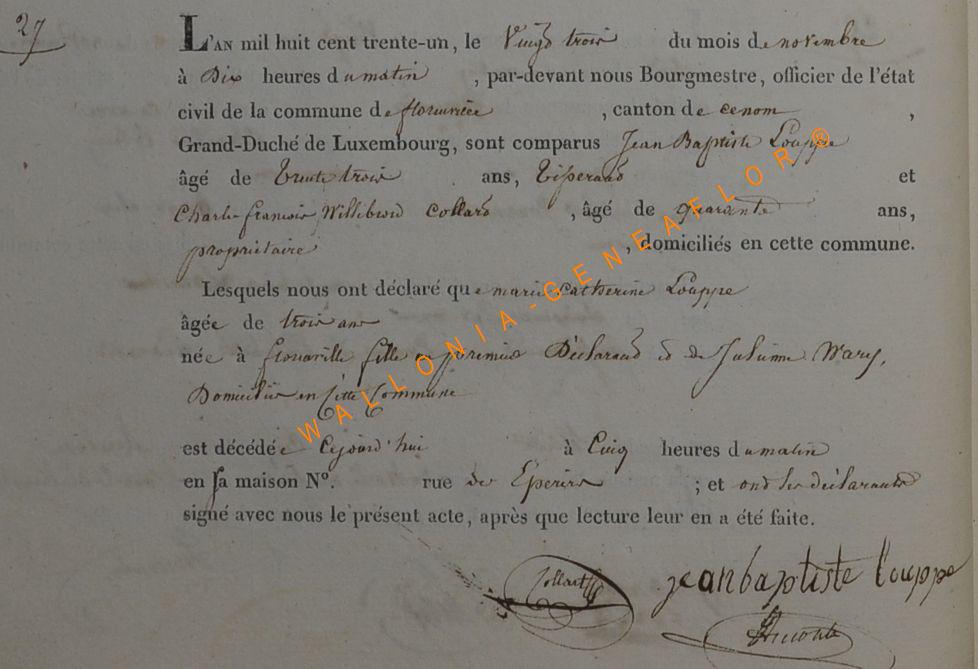 27
L'AN mil huit cent trente-un, le Vingd trois du mois de novembre
à Dix heures du matin, par-devant nous Bourgmestre, officier de l'état
civil de la commune de, canton de,
Grand-Duché de Luxembourg, sont comparus Jean Baptiste Louppe
âgé de trente trois ans, Tisserand et
Charle francois Willibrord Collard, âgé de quarante ans,
propriétaire, domiciliés en cette commune.
Lesquels nous ont déclaré que marie catherine Louppe
âgée de trois ans
née à fille du premier Déclarand et de Julienne Wary,
Domiciliés en cette Commune
est décédée Cejourd'hui à Cinq heures du matin
en sa maison N°. rue des; et ond les déclarants
signé avec nous le présent acte, après que lecture leur en a été faite.
Collart jeanbaptiste Louppe
WALLONIA-GENEAFLOR ®